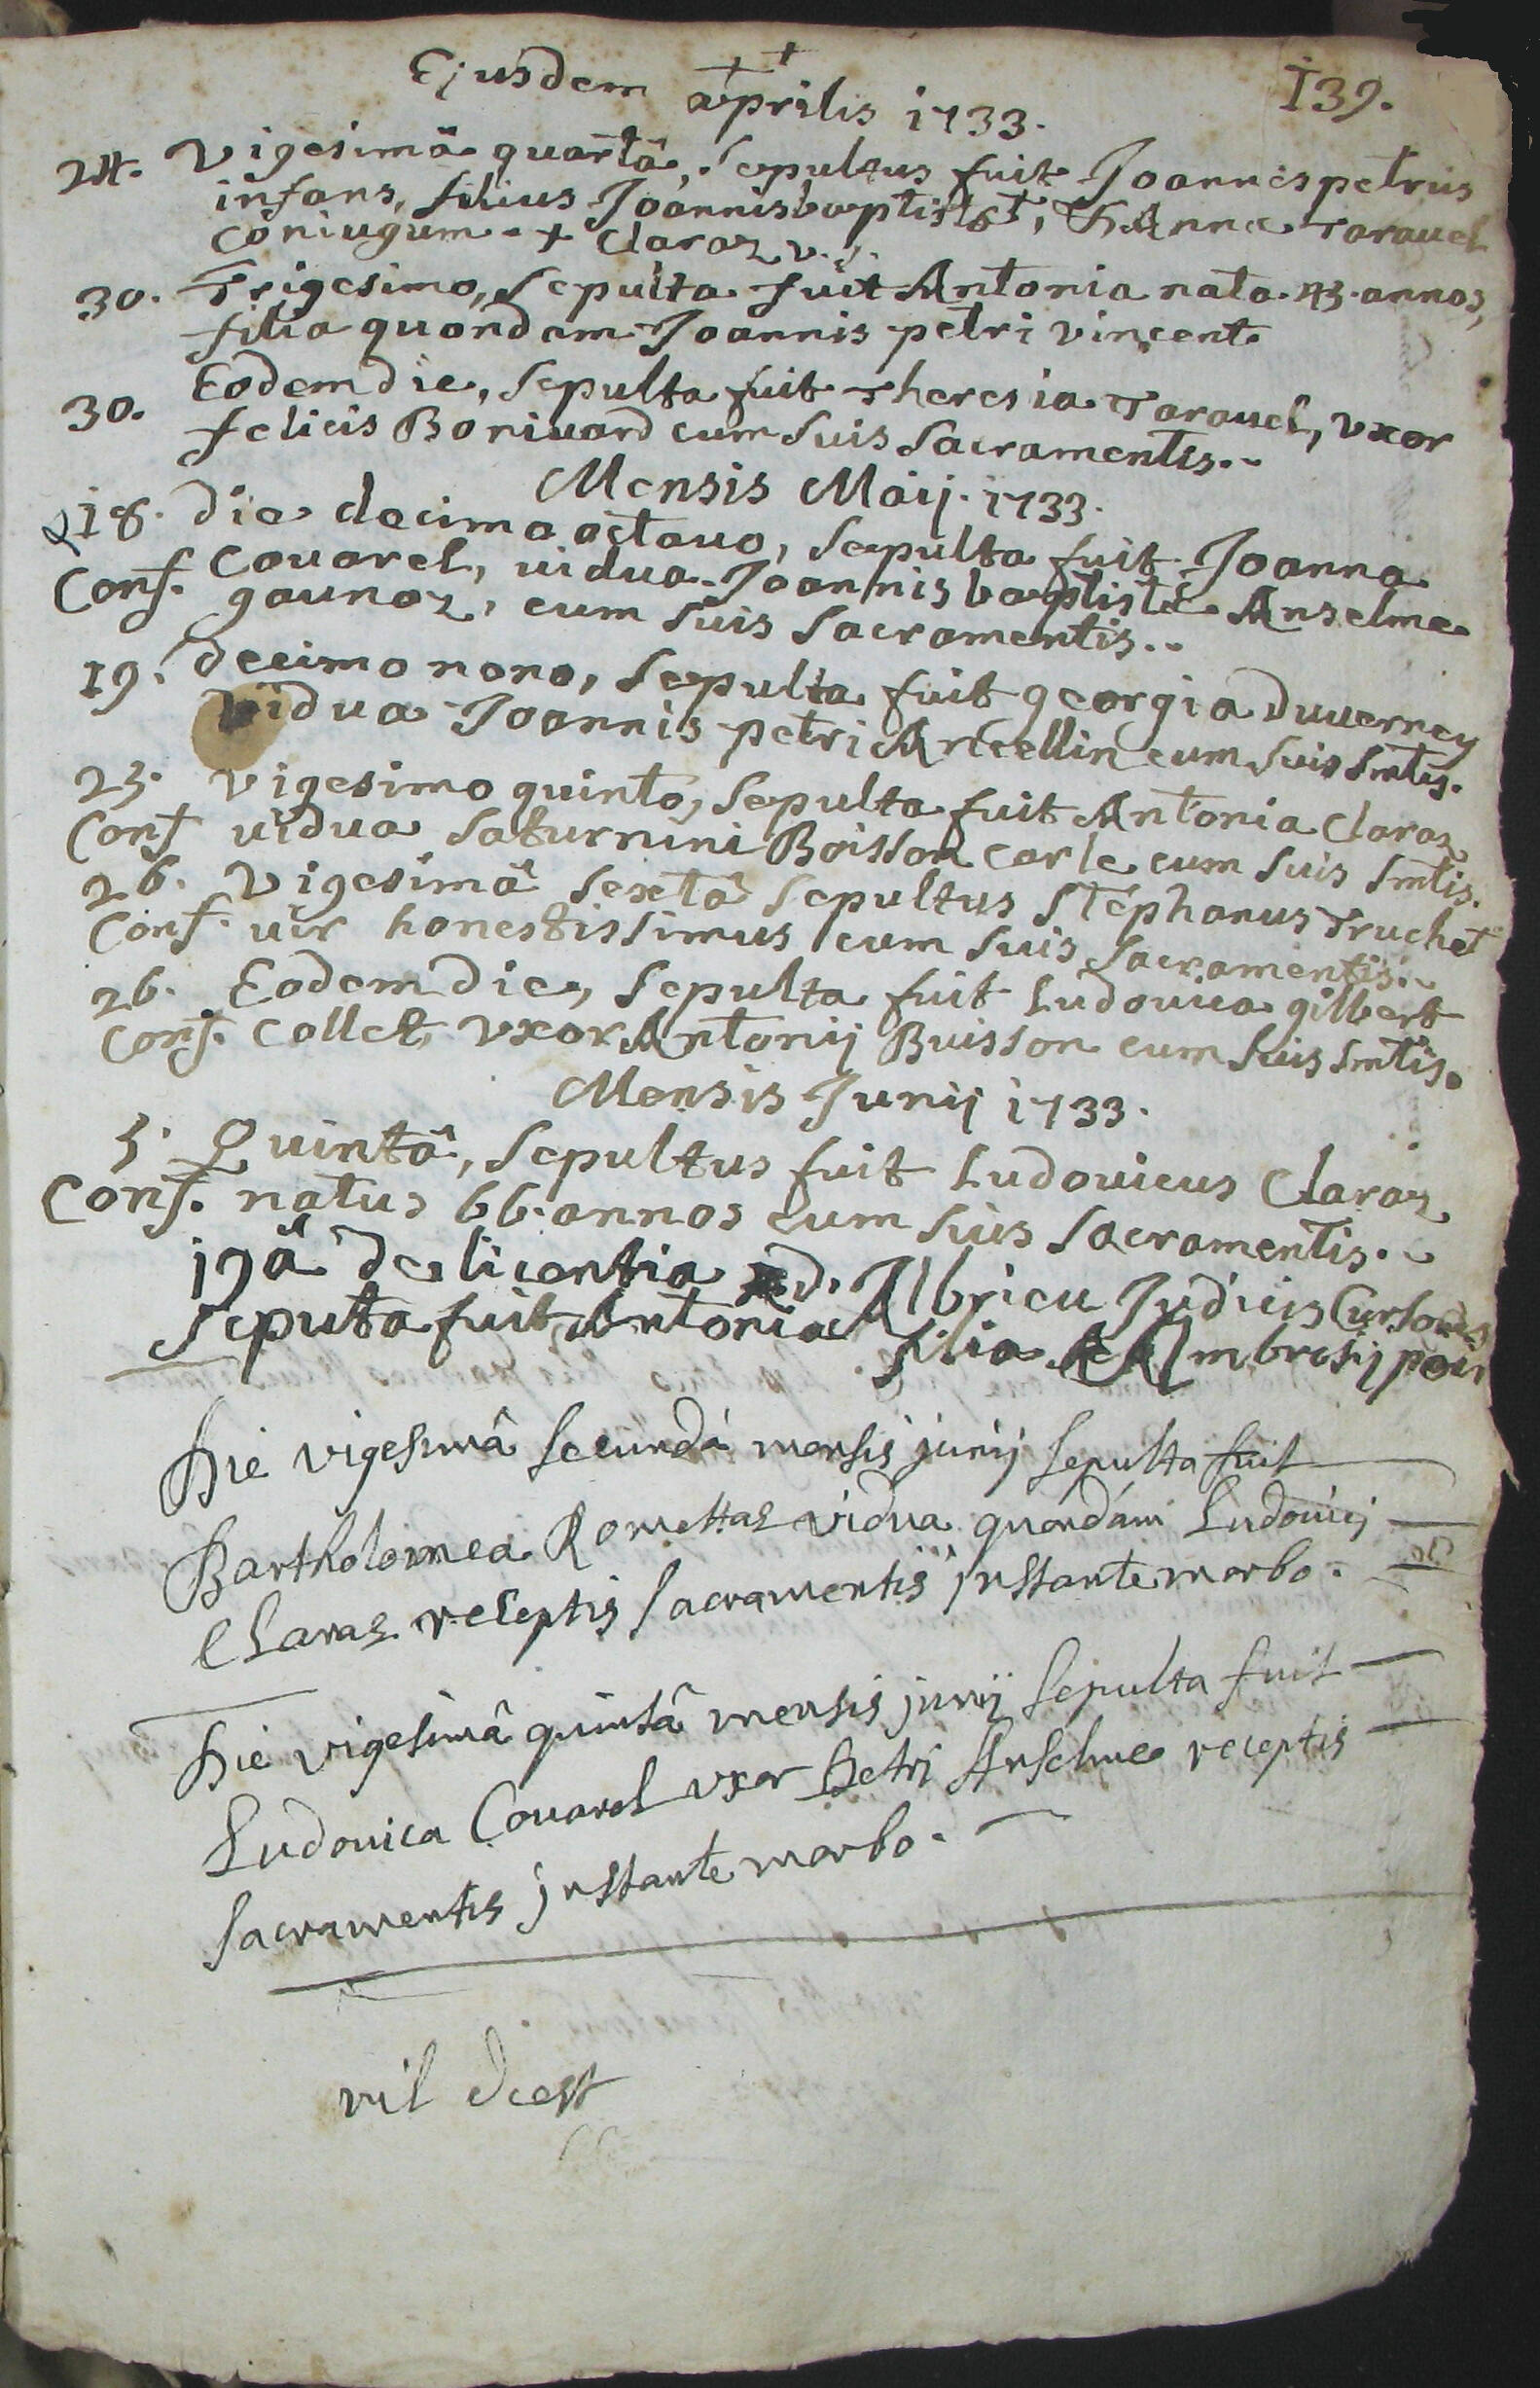 Ejusdem aprilis 1733. 139.
24. Vigesimâ quartâ, Sepultus fuit Joannespetrus
infans, filius Joannisbaptistæ †, & Annæ Taravel
coniugum. + Claraz v. s.
30. Trigesimo, Sepulta fuit Antonia nata 43 annos,
filia quondam Joannis petri vincent
30. Eodem die, Sepulta fuit Theresia Taravel, vxor
felicis Bonivard cum suis Sacramentis..
Mensis Maij. 1733.
18. Die decimo octavo, Sepulta fuit Joanna
Couarel, uidua Joannis baptistæ Anselme
Conf. gaunaz, cum suis sacramentis..
19. Decimo nono, Sepulta fuit georgia Duverney
vidua Joannis petri Ancellin cum suis smtis.
25. Vigesimo quinto, Sepulta fuit Antonia Claraz
Conf uidua Saturnini Boisson carle cum suis smtis.
26. Vigesimâ sextâ Sepultus Stephanus Truchet
Conf. uir honestissimus cum suis Sacramentis..
26. Eodem die, Sepulta fuit Ludovica gilbert
Conf. Collet, vxor Antonij Buisson cum suis smtis.
Mensis Junij 1733.
5. Quintâ, Sepultus fuit Ludovicus Claraz
Conf. natus 66. annos cum suis sacramentis..
19â de licentia d. Albrieu Judicis
Seputa fuit Antonia filia Ambrosij
Die vigesimâ secundâ mensis junij sepulta fuit
Bartholomea Romettaz vidua quondam Ludovicj
Claraz receptis sacramentis jnstante morbo.
Die vigesimâ quintâ mensis junij sepulta fuit
Ludovica Couarel vxor Petri Anselme receptis
sacramentis jnstante morbo.
nil deest